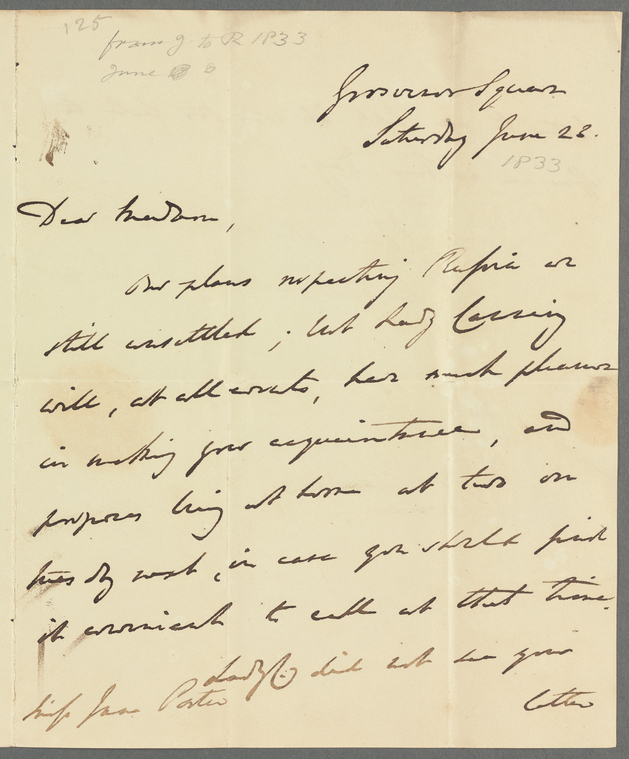 125
from J to R 1833
June
Grosvenor Square
Saturday June 28.
1833
Dear Madam,
Our plans respecting Russia are
still unsettled; but Lady Canning
will, at all events, have much pleasure
in making your acquaintance, and
proposes being at home at two on
Tuesday next, in case you should find
it convenient to call at that time.
Lady C. did not see your
Miss Jane Porter
letter